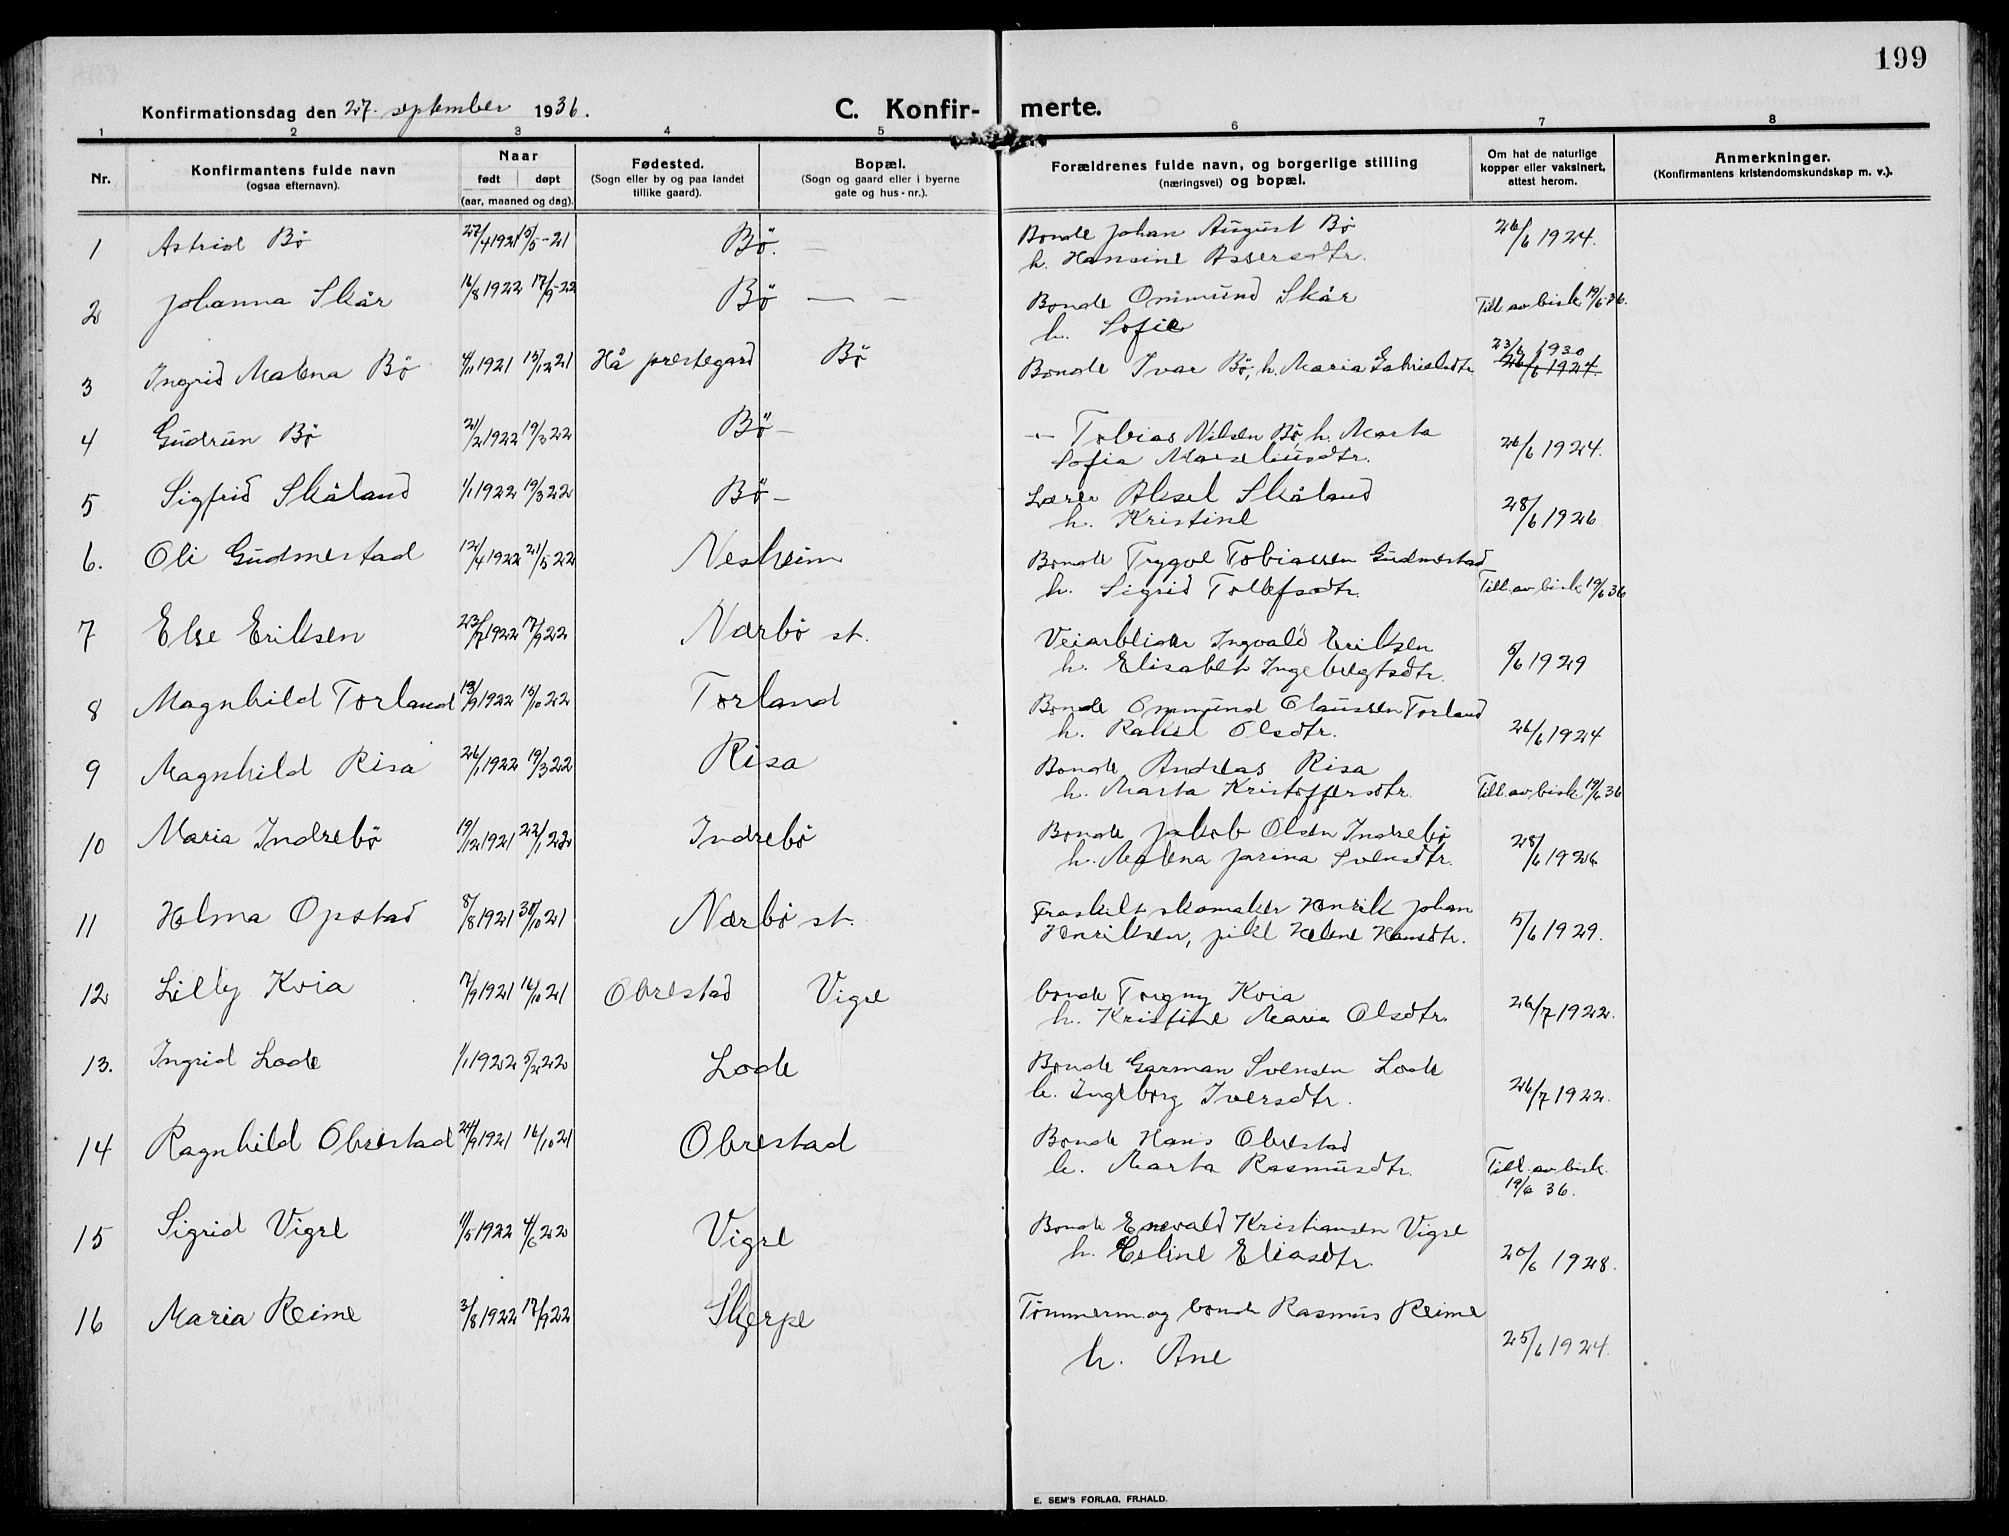 199
Konfirmationsdag den 27. september 1936.
C. Konfirmerte.
1 2 3 4 5 6 7 8
Nr.
Konfirmantens fulde navn
(ogsaa efternavn).
Naar
født | døpt
(aar, maaned og dag).
Fødested.
(Sogn eller by og paa landet
tillike gaard).
Bopæl.
(Sogn og gaard eller i byerne
gate og hus-nr.).
Forældrenes fulde navn, og borgerlige stilling
(næringsvei) og bopæl.
Om hat de naturlige
kopper eller vaksinert,
attest herom.
Anmerkninger.
(Konfirmantens kristendomskundskap m. v.).
1 Astrid Bö 27/4 1921 15/5-21 Bö. — Bonde Johan August Bö 26/6 1924.
h. Hansine Assersdtr.
2 Johanna Skår 16/8 1922 17/9-22 Bö — — Bonde Ommund Skår Till av bisk 19/6 36.
h. Sofie
3 Ingrid Malena Bö 4/11 1921 15/12 21 Hå prestegard Bö Bonde Ivar Bö, h. Maria Gabrielsdtr 23/6 1930
26/6 1924.
4 Gudrun Bö 21/2 1922 19/3 22 Bö — -"- Tobias Nilsen Bö, h. Marta
Sofia Marseliusdtr. 26/6 1924.
5 Sigfrid Skåland 1/1 1922 19/3 22 Bö — Lærer Aksel Skåland
h. Kristine 28/6 1926
6. Oli Gudmestad 12/4 1922 21/5 22 Nesheim Bonde Trygve Tobiassen Gudmestad
h. Sigrid Tollefsdtr. Till. av bisk 19/6 36
7 Else Eriksen 23/7 1922 17/9 22 Nærbö st. Veiarbeider Ingvald Eriksen
h. Elisabet Ingebregtsdtr. 5/6 1929
8 Magnhild Torland 13/9 1922 15/10 22 Torland Bonde Ommund Claussen Torland
h. Rakel Olsdtr. 26/6 1924
9 Magnhild Risa 26/1 1922 19/3 22 Risa Bonde Andreas Risa
h. Marta Kristoffersdtr. Till. av bisk 19/6 36
10 Maria Indrebö 19/12 1921 22/1 22 Indrebö Bonde Jakob Olsen Indrebö
h. Malena Jarina Svensdtr. 28/6 1926
11 Helma Opstad 8/8 1921 30/10 21 Nærbö st. Fraskilt skomaker Henrik Johan
Henriksen, pike Helene Hansdtr. 5/6 1929.
12 Lilly Kvia 17/9 1921 16/10 21 Obrestad Vigre bonde Torgny Kvia
h. Kristine Maria Olsdtr. 26/7 1922.
13. Ingrid Lode 1/1 1922 5/2 22 Lode Bonde Garman Svensen Lode
h. Ingeborg Iversdtr. 26/7 1922.
14 Ragnhild Obrestad 24/9 1921 16/10 21 Obrestad Bonde Hans Obrestad
h. Marta Rasmusdtr. Till. av bisk.
19/6 36.
15 Sigrid Vigre 11/5 1922 4/6 22 Vigre Bonde Enevald Kristiansen Vigre
h. Eline Eliasdtr. 20/6 1928.
16 Maria Reime 3/8 1922 17/9 22 Skjerpe Tömmerm. og bonde Rasmus Reime
h. Ane 25/6 1924.
E. SEM'S FORLAG, FR.HALD.